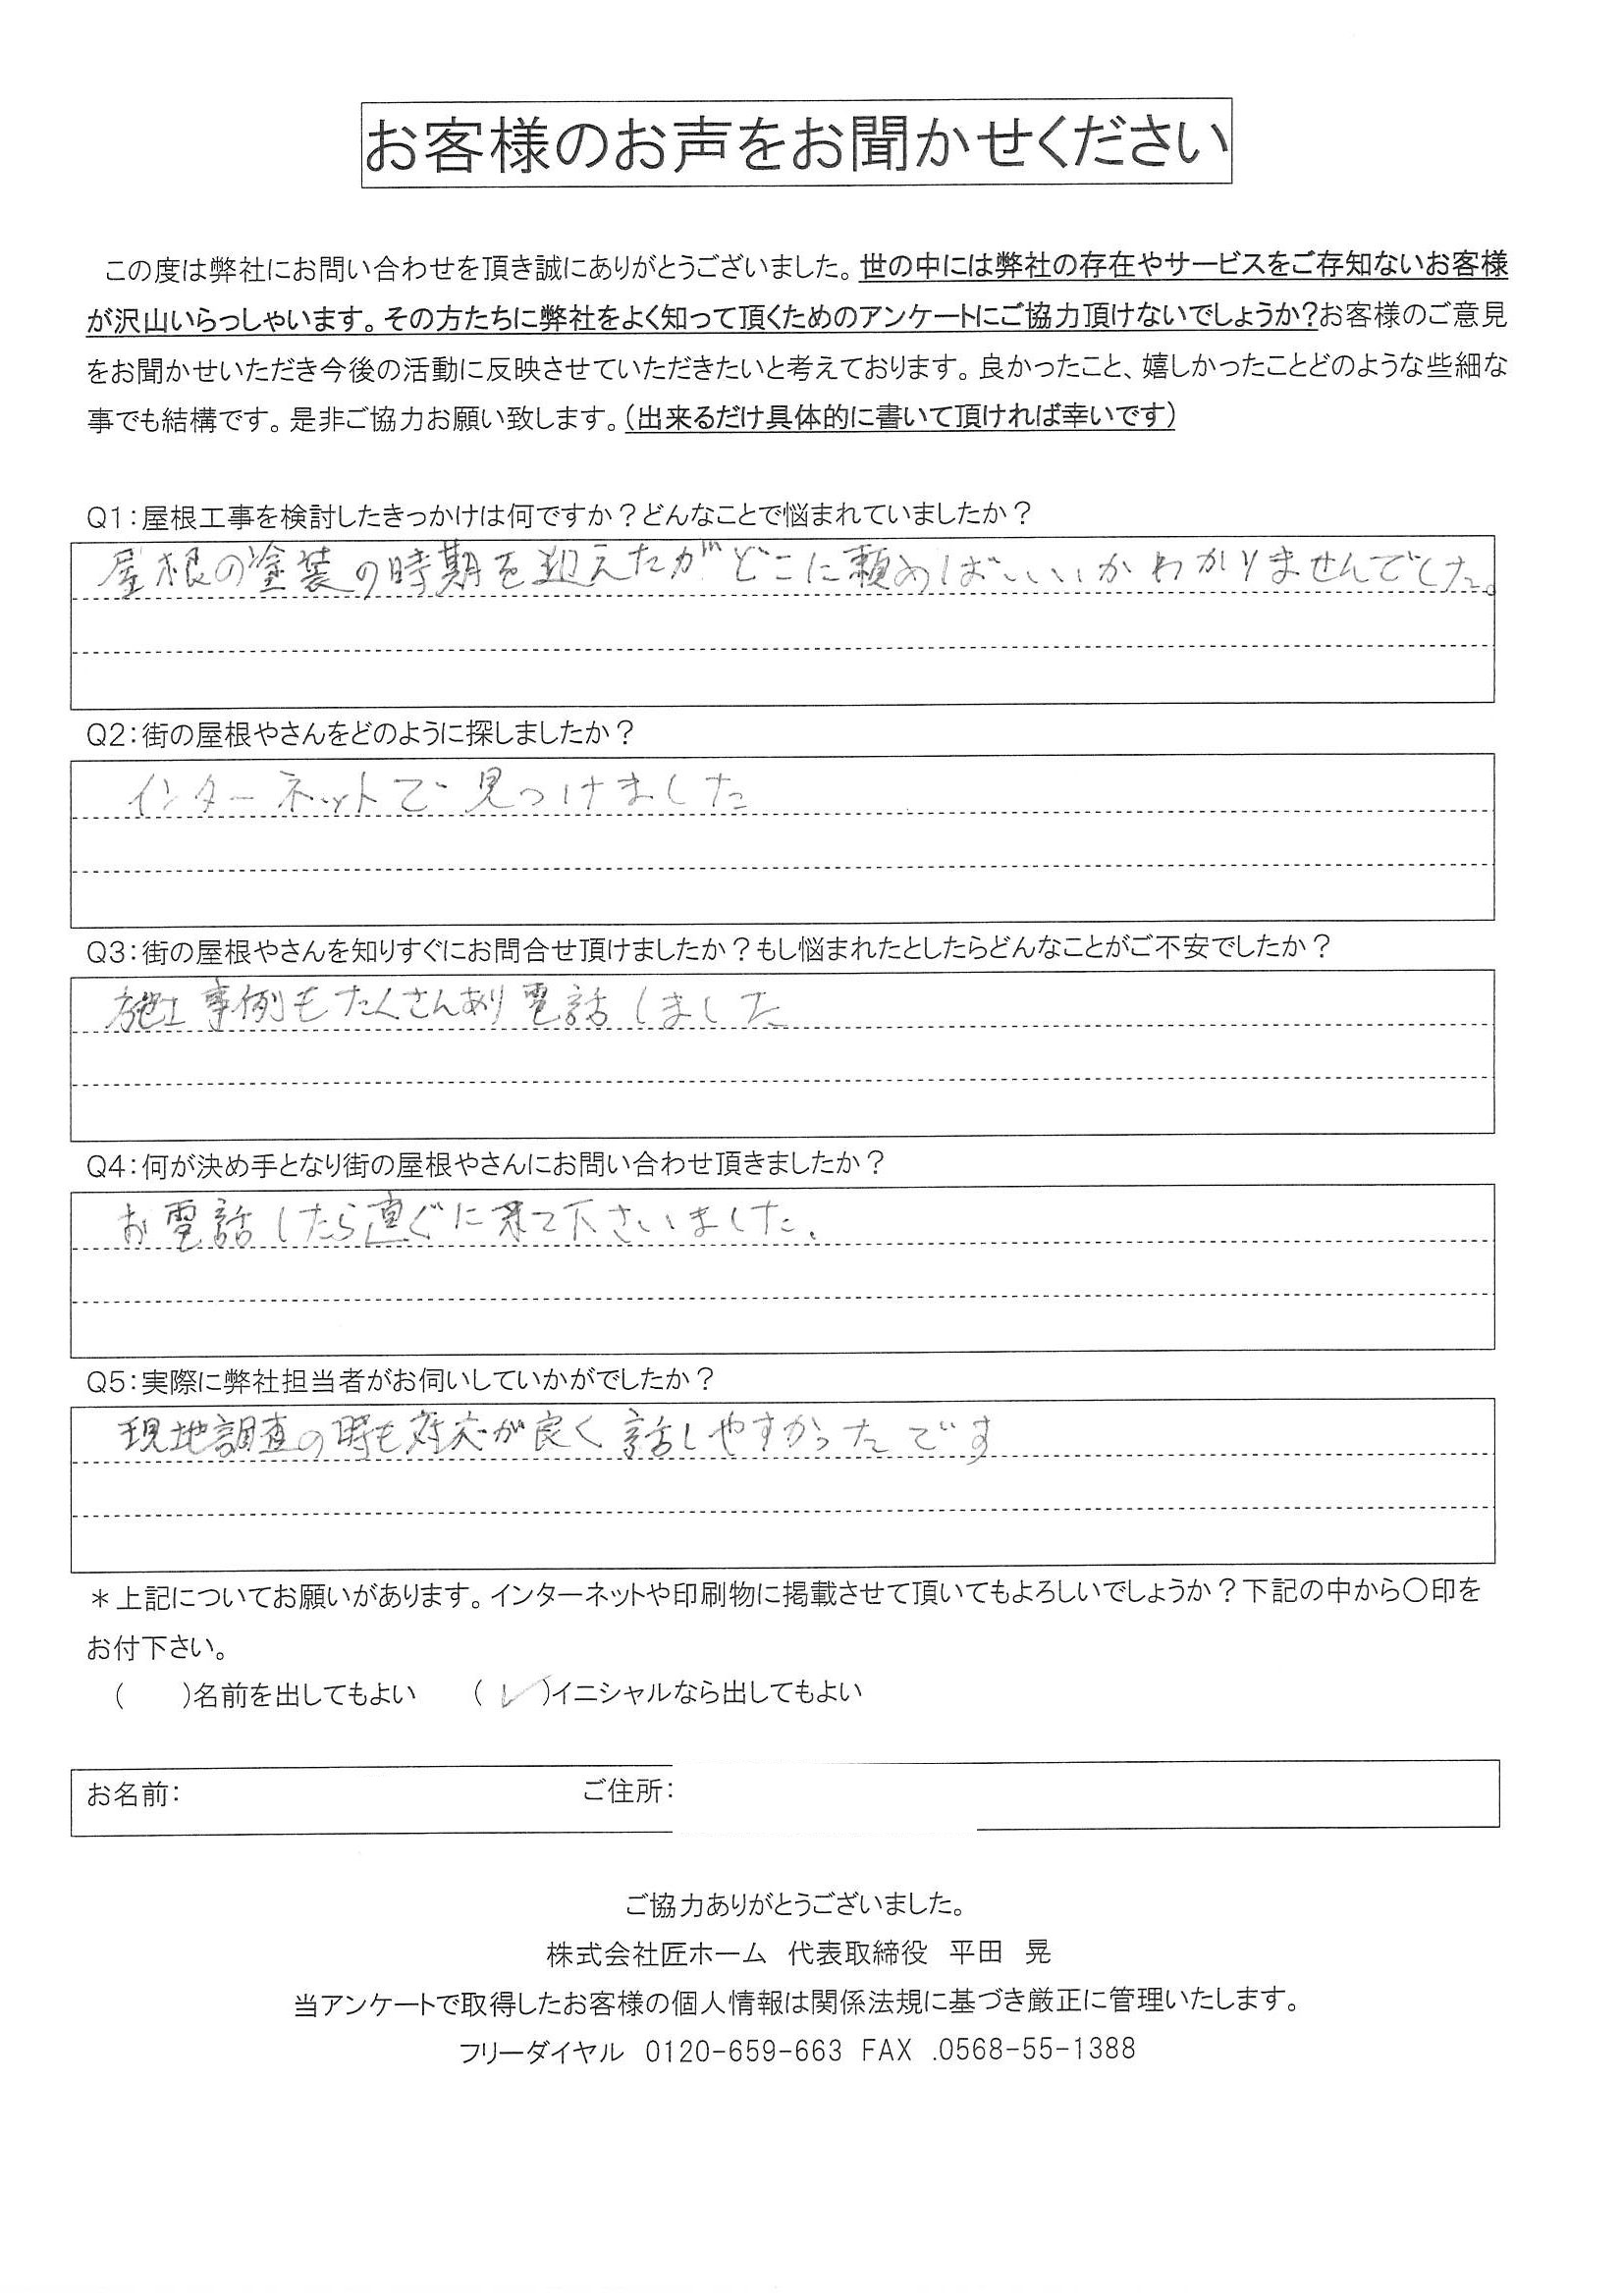 お客様のお声をお聞かせください
この度は弊社にお問い合わせを頂き誠にありがとうございました。世の中には弊社の存在やサービスをご存知ないお客様
が沢山いらっしゃいます。その方たちに弊社をよく知って頂くためのアンケートにご協力頂けないでしょうか?お客様のご意見
をお聞かせいただき今後の活動に反映させていただきたいと考えております。良かったこと、嬉しかったことどのような些細な
事でも結構です。是非ご協力お願い致します。(出来るだけ具体的に書いて頂ければ幸いです)
Q1:屋根工事を検討したきっかけは何ですか?どんなことで悩まれていましたか?
屋根の塗装の時期を迎えたがどこに頼めばいいかわかりませんでした。
Q2:街の屋根やさんをどのように探しましたか?
インターネットで見つけました
Q3:街の屋根やさんを知りすぐにお問合せ頂けましたか?もし悩まれたとしたらどんなことがご不安でしたか?
施工事例もたくさんあり電話しました
Q4:何が決め手となり街の屋根やさんにお問い合わせ頂きましたか?
お電話したら直ぐに来て下さいました。
Q5:実際に弊社担当者がお伺いしていかがでしたか?
現地調査の時も対応が良く話しやすかったです
*上記についてお願いがあります。インターネットや印刷物に掲載させて頂いてもよろしいでしょうか?下記の中から〇印を
お付下さい。
(　　)名前を出してもよい　(✓)イニシャルなら出してもよい
お名前:　ご住所:
ご協力ありがとうございました。
株式会社匠ホーム　代表取締役　平田　晃
当アンケートで取得したお客様の個人情報は関係法規に基づき厳正に管理いたします。
フリーダイヤル　0120-659-663 FAX .0568-55-1388